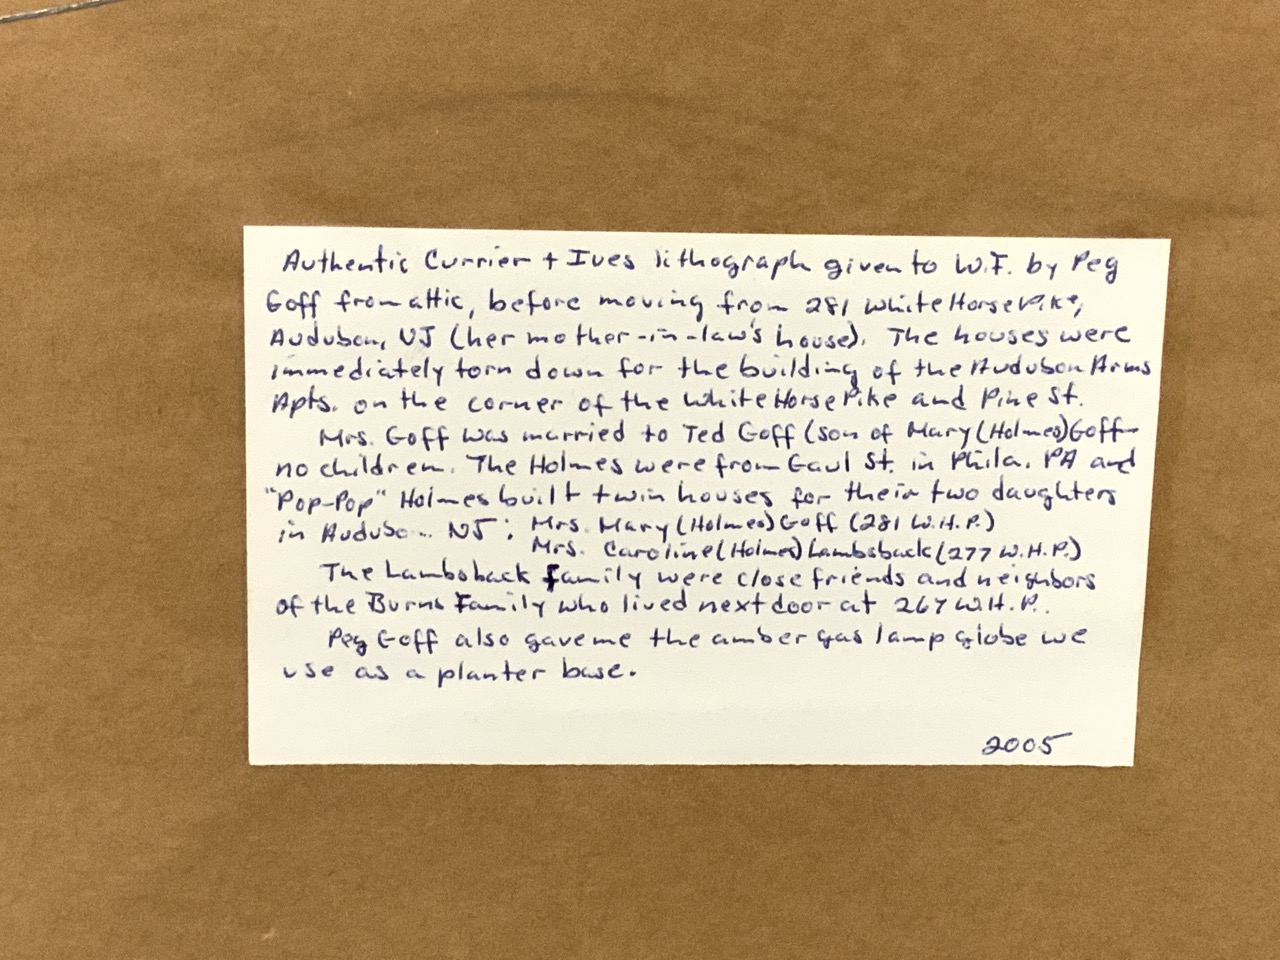 Authentic Currier + Ives lithograph given to W.F. by Peg
Goff from attic, before moving from 281 White Horse Pike,
Audubon, NJ (her mother-in-law's house). The houses were
immediately torn down for the building of the Audubon Arms
Apts. on the corner of the White Horse Pike and Pine St.
Mrs. Goff was married to Ted Goff (son of Mary (Holmes) Goff-
no children. The Holmes were from Gaul St. in Phila. PA and
"Pop-Pop" Holmes built twin houses for their two daughters
in Audubon NJ: Mrs. Mary (Holmes) Goff (281 W.H.P.)
Mrs. Caroline (Holmes) Lambsback (277 W.H.P.)
The Lambsback family were close friends and neighbors
of the Burns Family who lived next door at 267 W.H.P.
Peg Goff also gave me the amber gas lamp globe we
use as a planter base.
2005